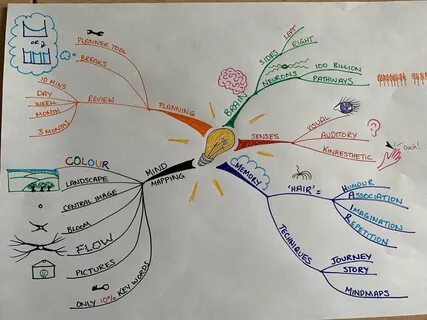 OR
?
PLANNER TOOL
BREAKS
10 MINS
DAY
WEEK
MONTH
3 MONTHS
REVIEW
PLANNING
BRAIN
SIDES
LEFT
RIGHT
NEURONS
100 BILLION
PATHWAYS
SENSES
VISUAL
AUDITORY
KINAESTHETIC
?
Ouch!
MEMORY
'HAIR' =
HUMOUR
ASSOCIATION
IMAGINATION
REPETITION
TECHNIQUES
JOURNEY
STORY
MINDMAPS
MIND
MAPPING
COLOUR
LANDSCAPE
CENTRAL IMAGE
BLOOM
FLOW
PICTURES
ONLY 10% KEY WORDS